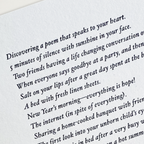 Discovering a poem that speaks to your heart.
5 minutes of silence with sunshine in your face.
Two friends having a life changing conversation
When everyone says goodbye at a party, and then
Salt on your lips after a great day spent at the
A bed with fresh linen sheets.
New Year's morning—everything is hope!
The internet (in spite of everything)
Sharing a home-cooked banquet with friends
first look into your newborn child's eyes
in bed after a very busy